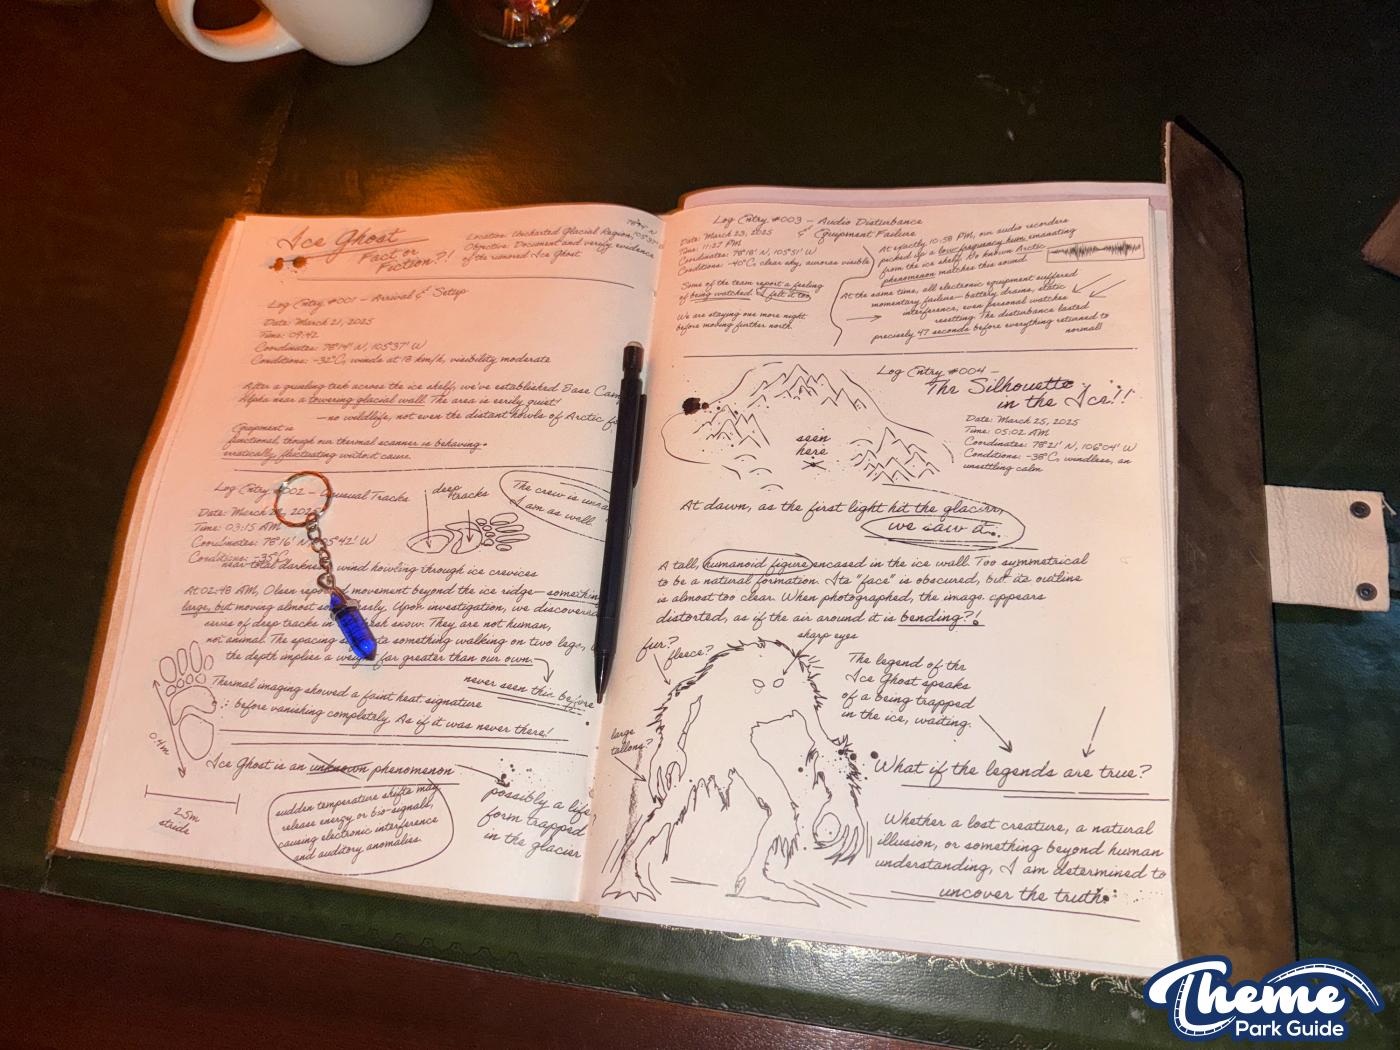 Ice Ghost
Fact or
Fiction?!
Location: Uncharted Glacial Region,
Objective: Document and verify evidence
of the rumored Ice Ghost
Log Entry #001 - Arrival & Setup
Date: March 21, 2025
Time: 09:42
Coordinates: 78°14' N, 105°37' W
Conditions: -32°C, winds at 18 km/h, visibility moderate
After a grueling trek across the ice shelf, we've established Base Camp
Alpha near a towering glacial wall. The area is eerily quiet!
- no wildlife, not even the distant howls of Arctic
Equipment is
functional, though our thermal scanner is behaving
erratically, fluctuating without cause.
Log Entry #002 - Unusual Tracks
Date: March 2 , 2025
Time: 03:15 AM
Coordinates: 78°16' N, 105°42' W
Conditions: -35°C,
near-total darkness, wind howling through ice crevices
deep
tracks
The crew is
I am as well.
At 02:48 AM, Olsen movement beyond the ice ridge- something
large, but moving almost Upon investigation, we discovered
series of deep tracks in fresh snow. They are not human,
not animal. The spacing something walking on two legs,
the depth implies a weight far greater than our own.
never seen this before
Thermal imaging showed a faint heat signature
before vanishing completely. As if it was never there!
0.4m
2.5m
stride
Ice Ghost is an unknown phenomenon
sudden temperature shifts may
release energy or bio-signals,
causing electronic interference
and auditory anomalies.
possibly a life
form trapped
in the glacier
Log Entry #003 - Audio Disturbance
& Equipment Failure
Date: March 23, 2025
Time: 11:27 PM
Coordinates: 78°18' N, 105°51' W
Conditions: -40°C, clear sky, auroras visible
Some of the team report a feeling
of being watched. I felt it too.
We are staying one more night
before moving further north.
At exactly 10:58 PM, our audio recorders
picked up a low-frequency hum emanating
from the ice shelf. No known Arctic
phenomenon matches this sound.
At the same time, all electronic equipment suffered
momentary failure- battery drains, static
interference, even personal watches
resetting. The disturbance lasted
precisely 47 seconds before everything returned to
normal!
Log Entry #004 -
The Silhouette
in the Ice!!
Date: March 25, 2025
Time: 05:02 AM
Coordinates: 78°21' N, 106°04' W
Conditions: -38°C, windless, an
unsettling calm
seen
here
At dawn, as the first light hit the glacier,
we saw it.
A tall, humanoid figure encased in the ice wall. Too symmetrical
to be a natural formation. Its "face" is obscured, but its outline
is almost too clear. When photographed, the image appears
distorted, as if the air around it is bending?!
fur?
fleece?
sharp eyes
large
tallons?
The legend of the
Ice Ghost speaks
of a being trapped
in the ice, waiting.
What if the legends are true?
Whether a lost creature, a natural
illusion, or something beyond human
understanding, I am determined to
uncover the truth.
Theme
Park Guide